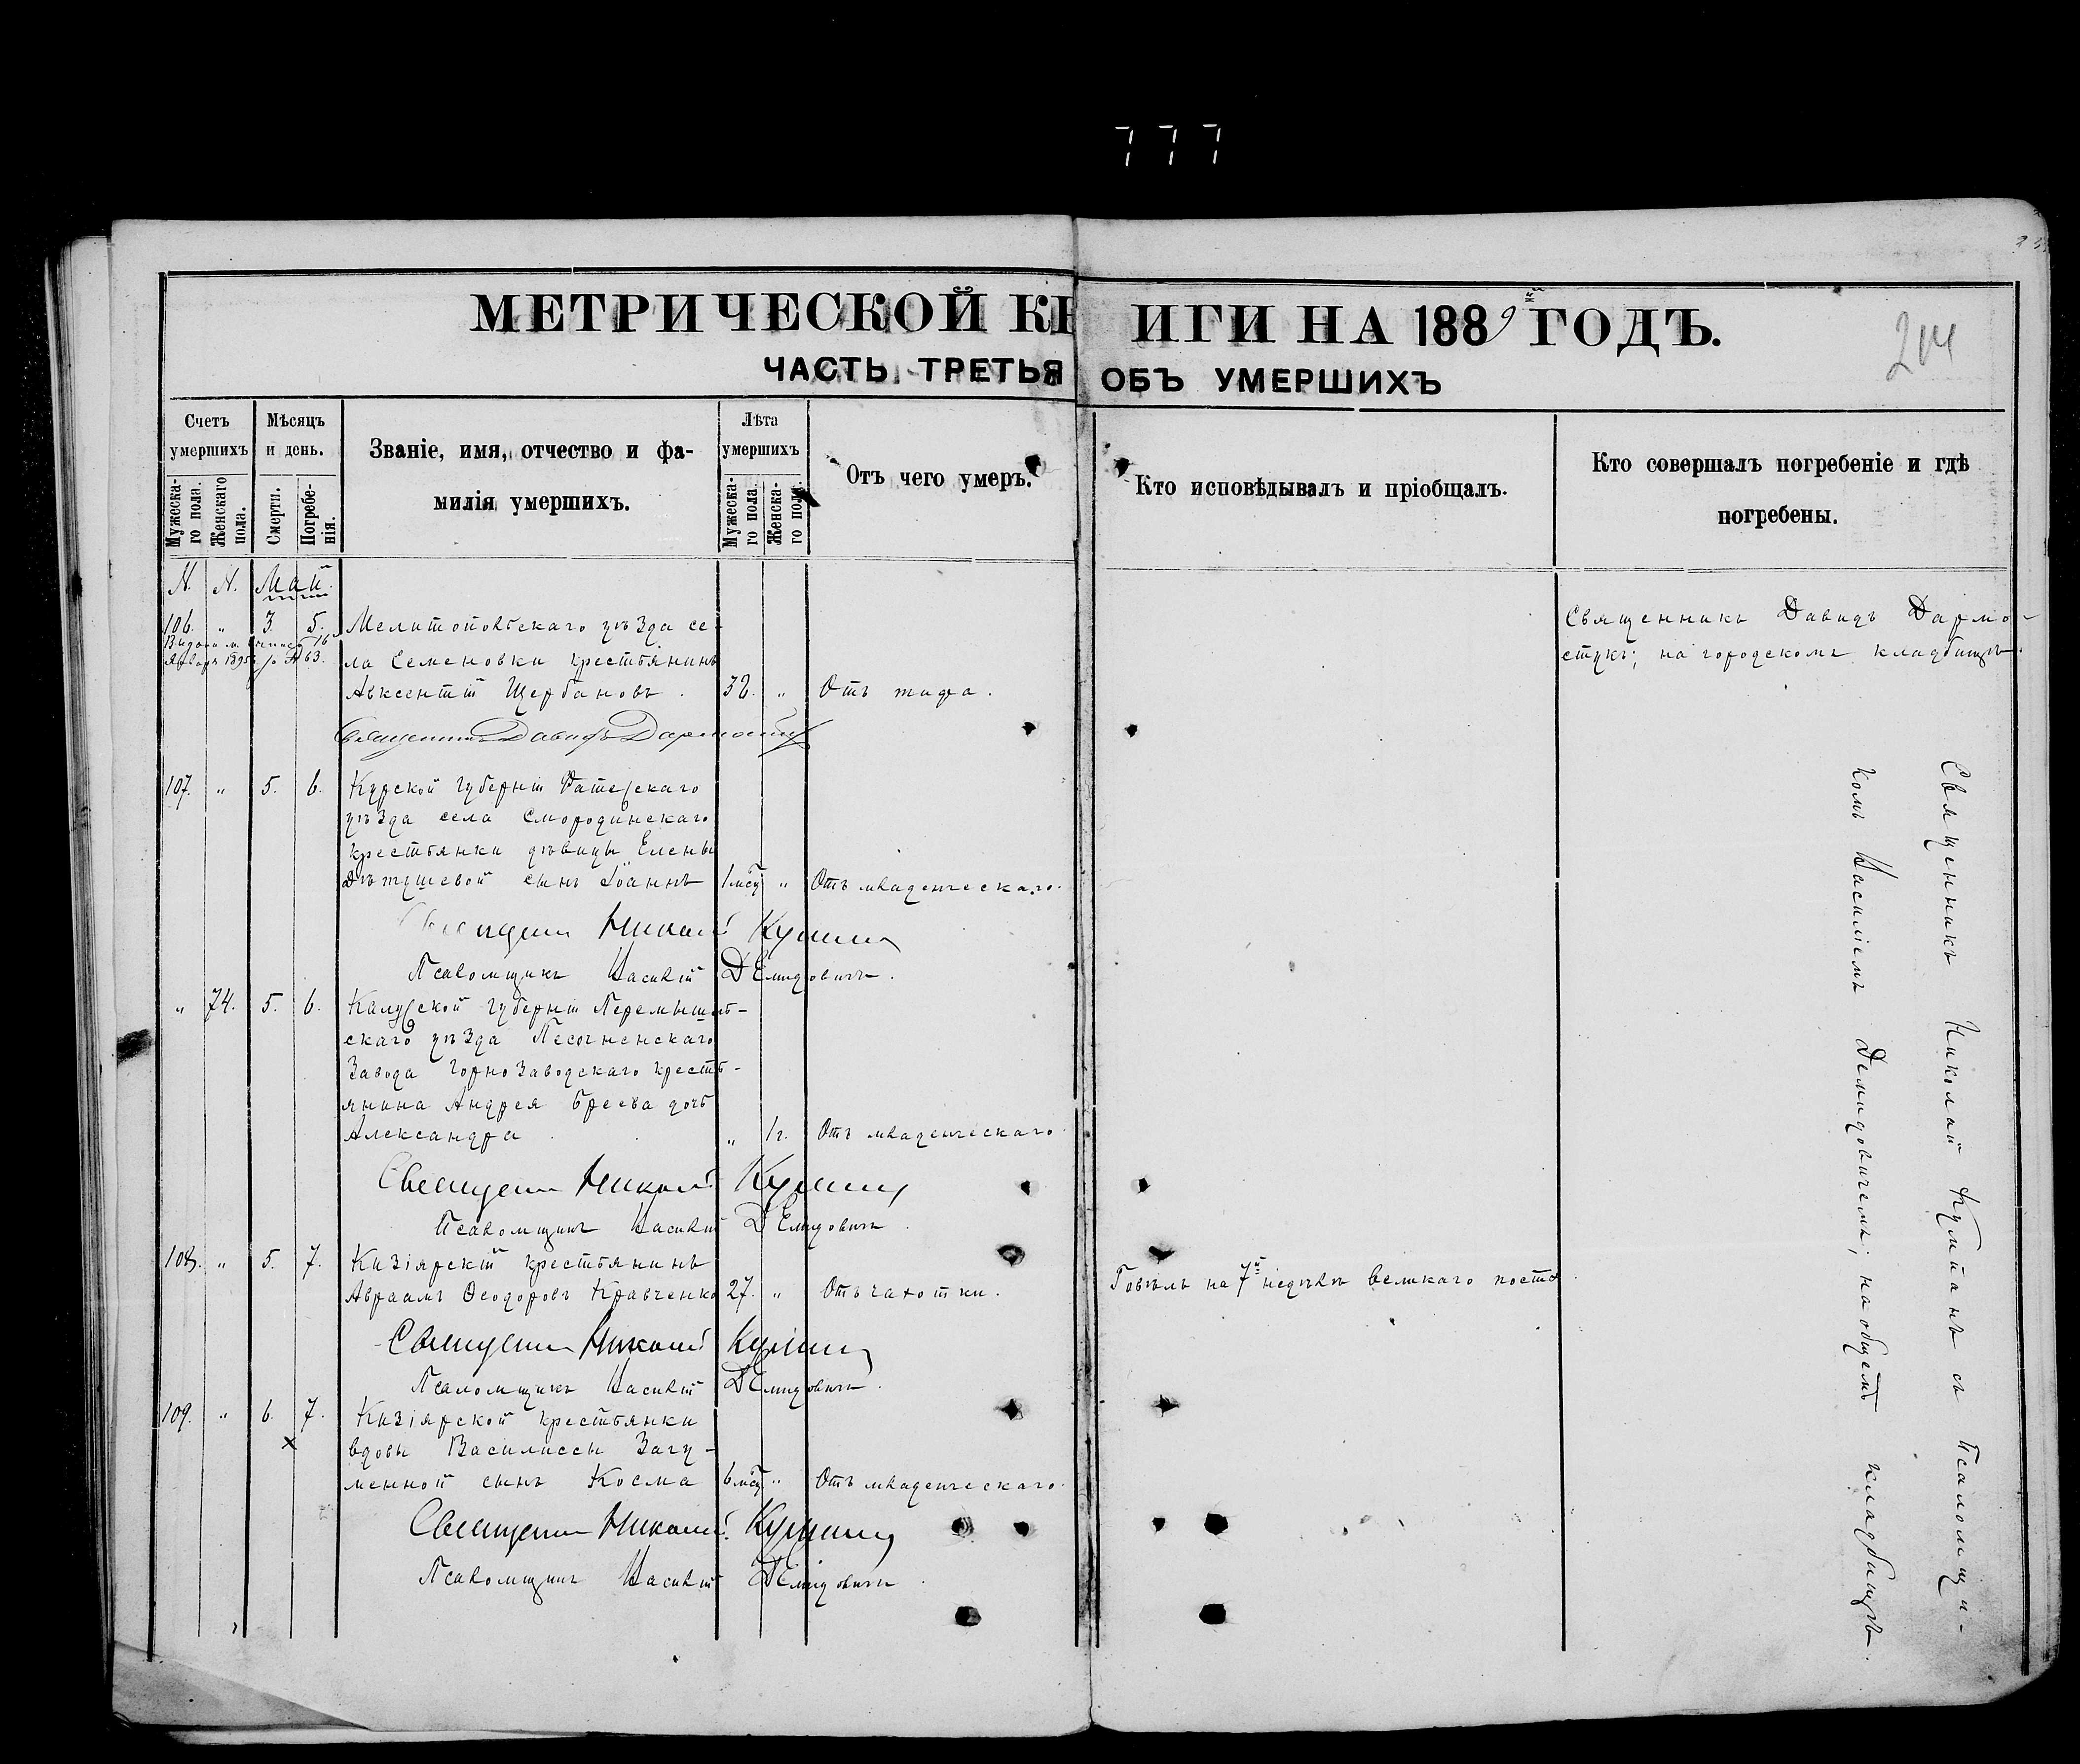 777
МЕТРИЧЕСКОЙ КНИГИ НА 1889 ГОДЪ.
214
ЧАСТЬ ТРЕТЬЯ ОБЪ УМЕРШИХЪ
Счетъ умершихъ
Мужеска-го пола.
Женскаго пола.
Мѣсяцъ и день.
Смерти.
Погребе-нія.
Званіе, имя, отчество и фа-
милія умершихъ.
Лѣта умершихъ
Мужеска-го пола.
Женска-го пола.
Отъ чего умеръ.
Кто исповѣдывалъ и пріобщалъ.
Кто совершалъ погребеніе и гдѣ
погребены.
N. N. Май.
106. „ 3. 5. Мелитопольскаго уѣзда се-
ла Семеновки крестьянинъ
Авксентій Щербановъ. 32. „ Отъ тифа.
Священникъ Давидъ Дармо-
стукъ; на городскомъ кладбищѣ.
Священникъ Давидъ Дармостукъ
107. „ 5. 6. Курской губерніи Фатежскаго
уѣзда села Смородинскаго
крестьянки дѣвицы Елены
Дѣтушевой сынъ Іоаннъ 1 мѣсц „ Отъ младенческаго.
Священникъ Николай Купчинъ
Псаломщикъ Василій Демидовичъ.
„ 74. 5. 6. Калужской губерніи Перемышль-
скаго уѣзда Песочненскаго
Завода горнозаводскаго кресть-
янина Андрея Бреева дочь
Александра „ 1 г. Отъ младенческаго
Священникъ Николай
Псаломщикъ Василій Демидовичъ.
108. „ 5. 7. Кизіярскій крестьянинъ
Авраамъ Ѳеодоровъ Кравченко 27. „ Отъ чахотки. Говѣлъ на 7й недѣлѣ великаго поста.
Священникъ Николай
Псаломщикъ Василій Демидовичъ.
109. „ 6. 7. Кизіярской крестьянки
вдовы Василиссы Загу-
менной сынъ Косма 6 мѣсц „ Отъ младенческаго.
Священникъ Николай
Псаломщикъ Василій Демидовичъ.
Священникъ Николай съ Псаломщи-
комъ Василіемъ Демидовичемъ; на общемъ кладбищѣ.